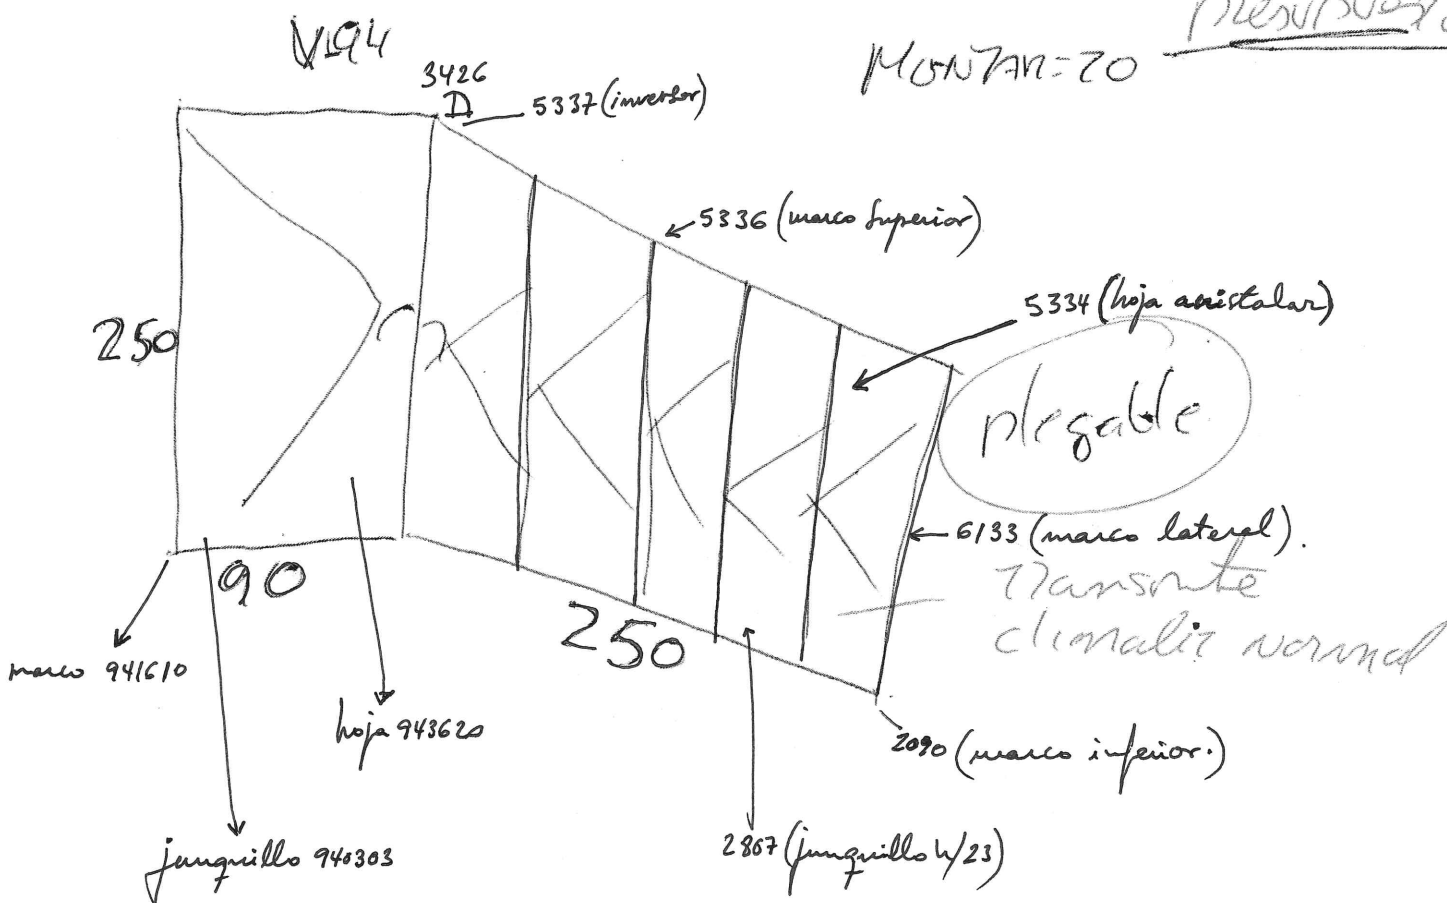 presupuesto
MONTAR=20
V94
3426
D
5337 (inversor)
5336 (marco superior)
5334 (hoja acristalar)
250
plegable
6133 (marco lateral).
90
250
climalit normal
marco 941610
hoja 943620
2090 (marco inferior.)
junquillo 940303
2867 (junquillo h/23)